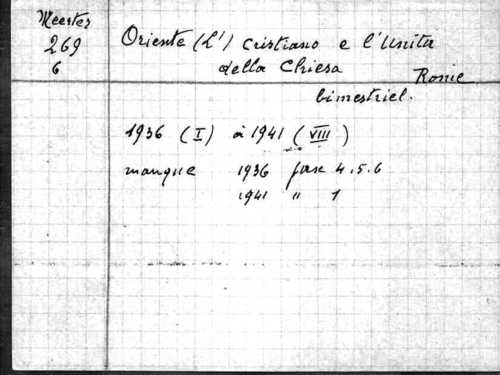 Meester
269
6
Oriente (L') cristiano e l'Unita
della Chiesa
Rome
bimestriel.
1936 (I) à 1941 (VIII)
manque 1936 fasc 4.5.6
1941 " 1